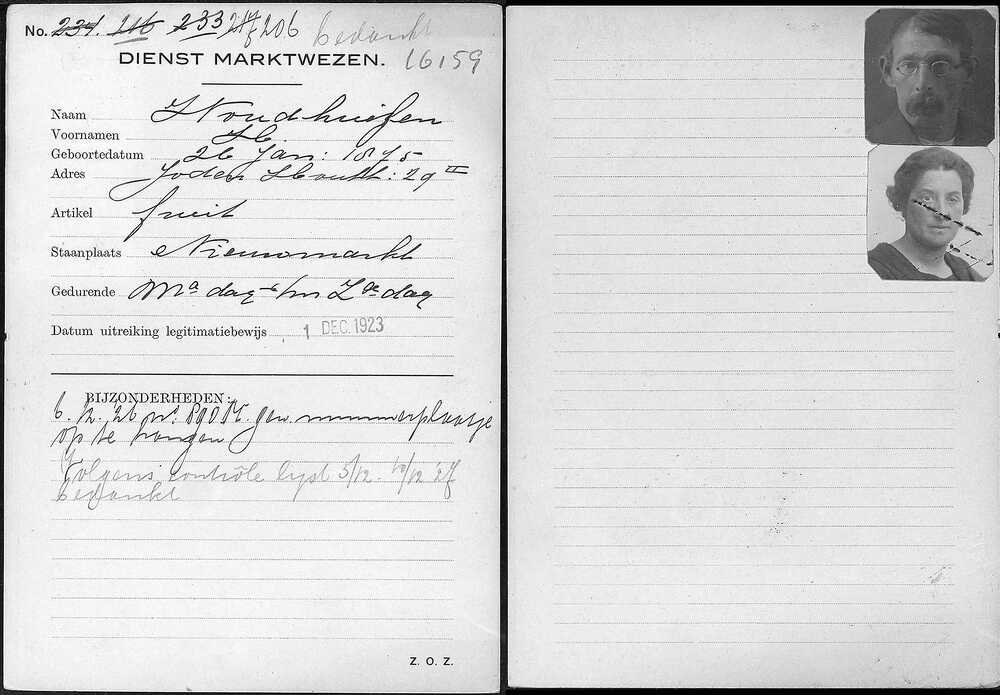 No. 234. 216 233 217 206 bedankt
DIENST MARKTWEZEN. 16159
Naam Woudhuijsen
Voornamen H.
Geboortedatum 26 Jan: 1875
Adres Joden Houtt: 29 II
Artikel fruit
Staanplaats Nieuwmarkt
Gedurende Ma dag t/m Za dag
Datum uitreiking legitimatiebewijs 1 DEC. 1923
BIJZONDERHEDEN:
6. 12. 26 nummerplaatje
op te hangen
Volgens contrôle lijst 5/12 - 10/12 '27
bedankt
Z. O. Z.